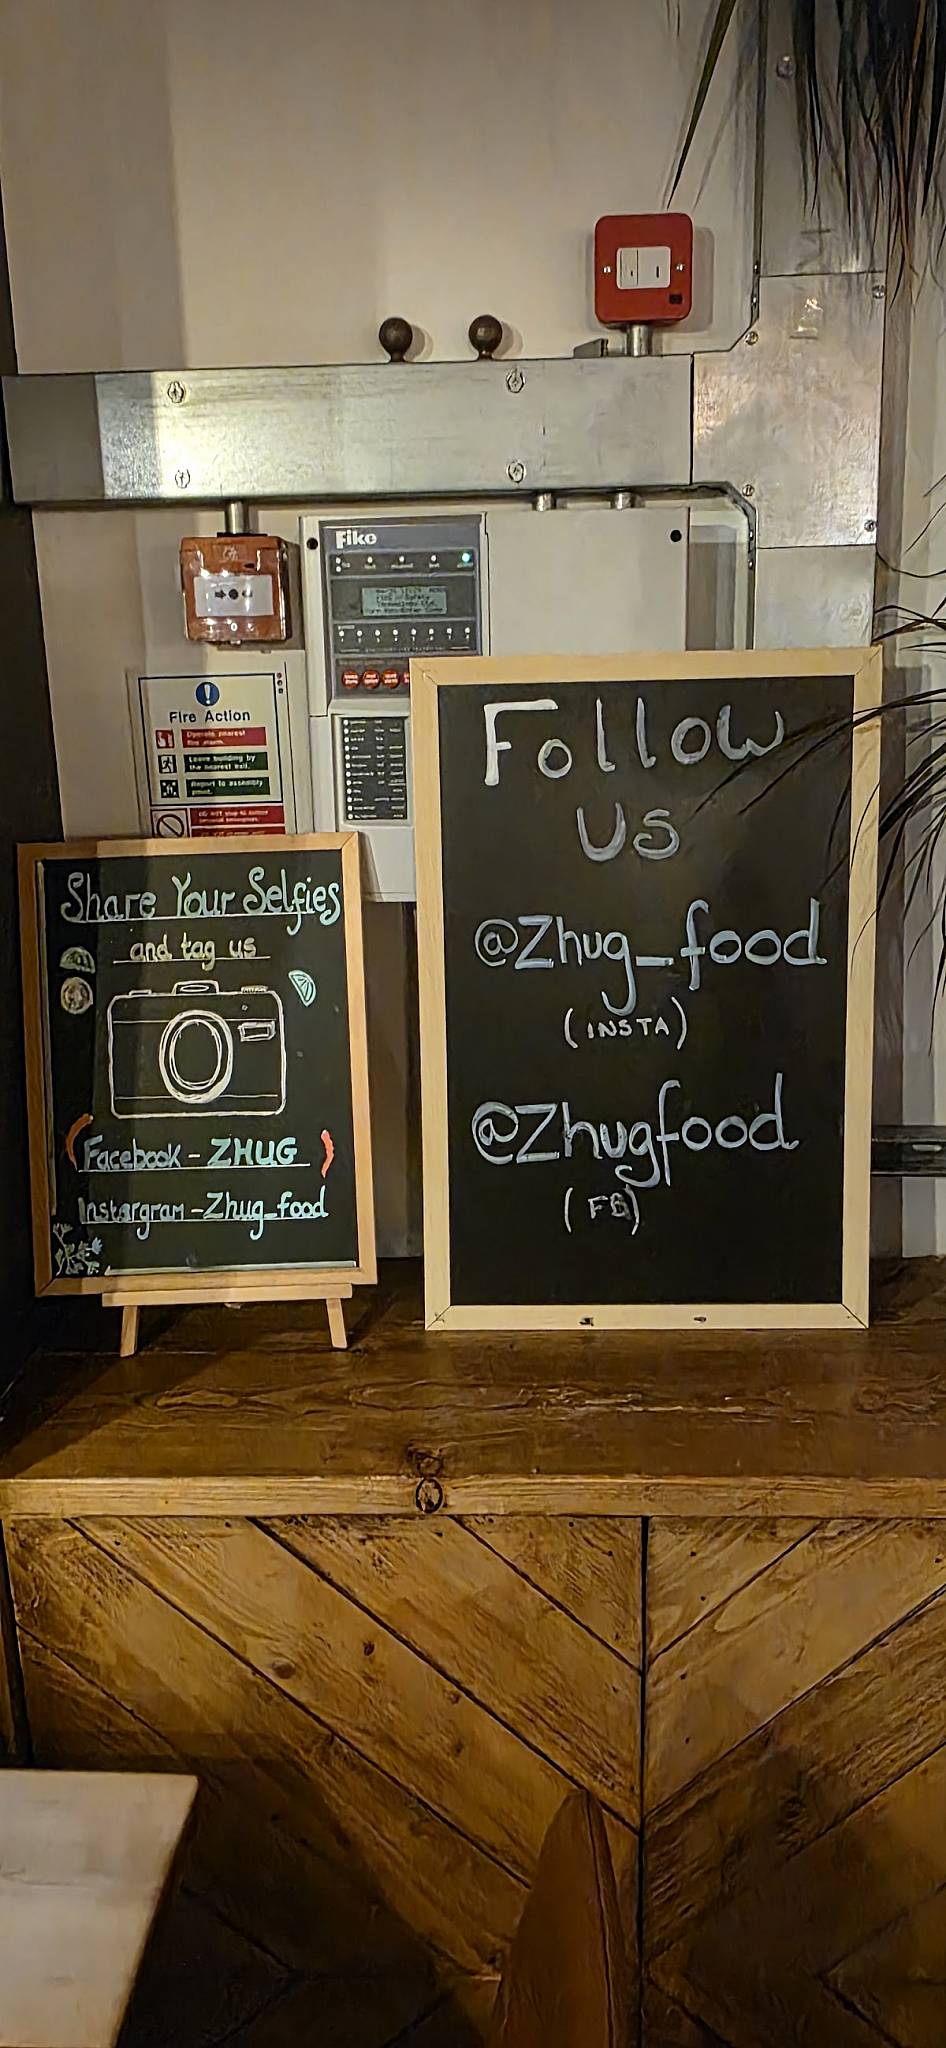 Fike
Fire Action
Operate nearest
fire alarm.
Leave building by
the nearest exit.
Report to assembly
point.
Share Your Selfies
and tag us
Facebook - ZHUG
Instargram - Zhug_food
Follow
us
@Zhug_food
(INSTA)
@Zhugfood
(FB)